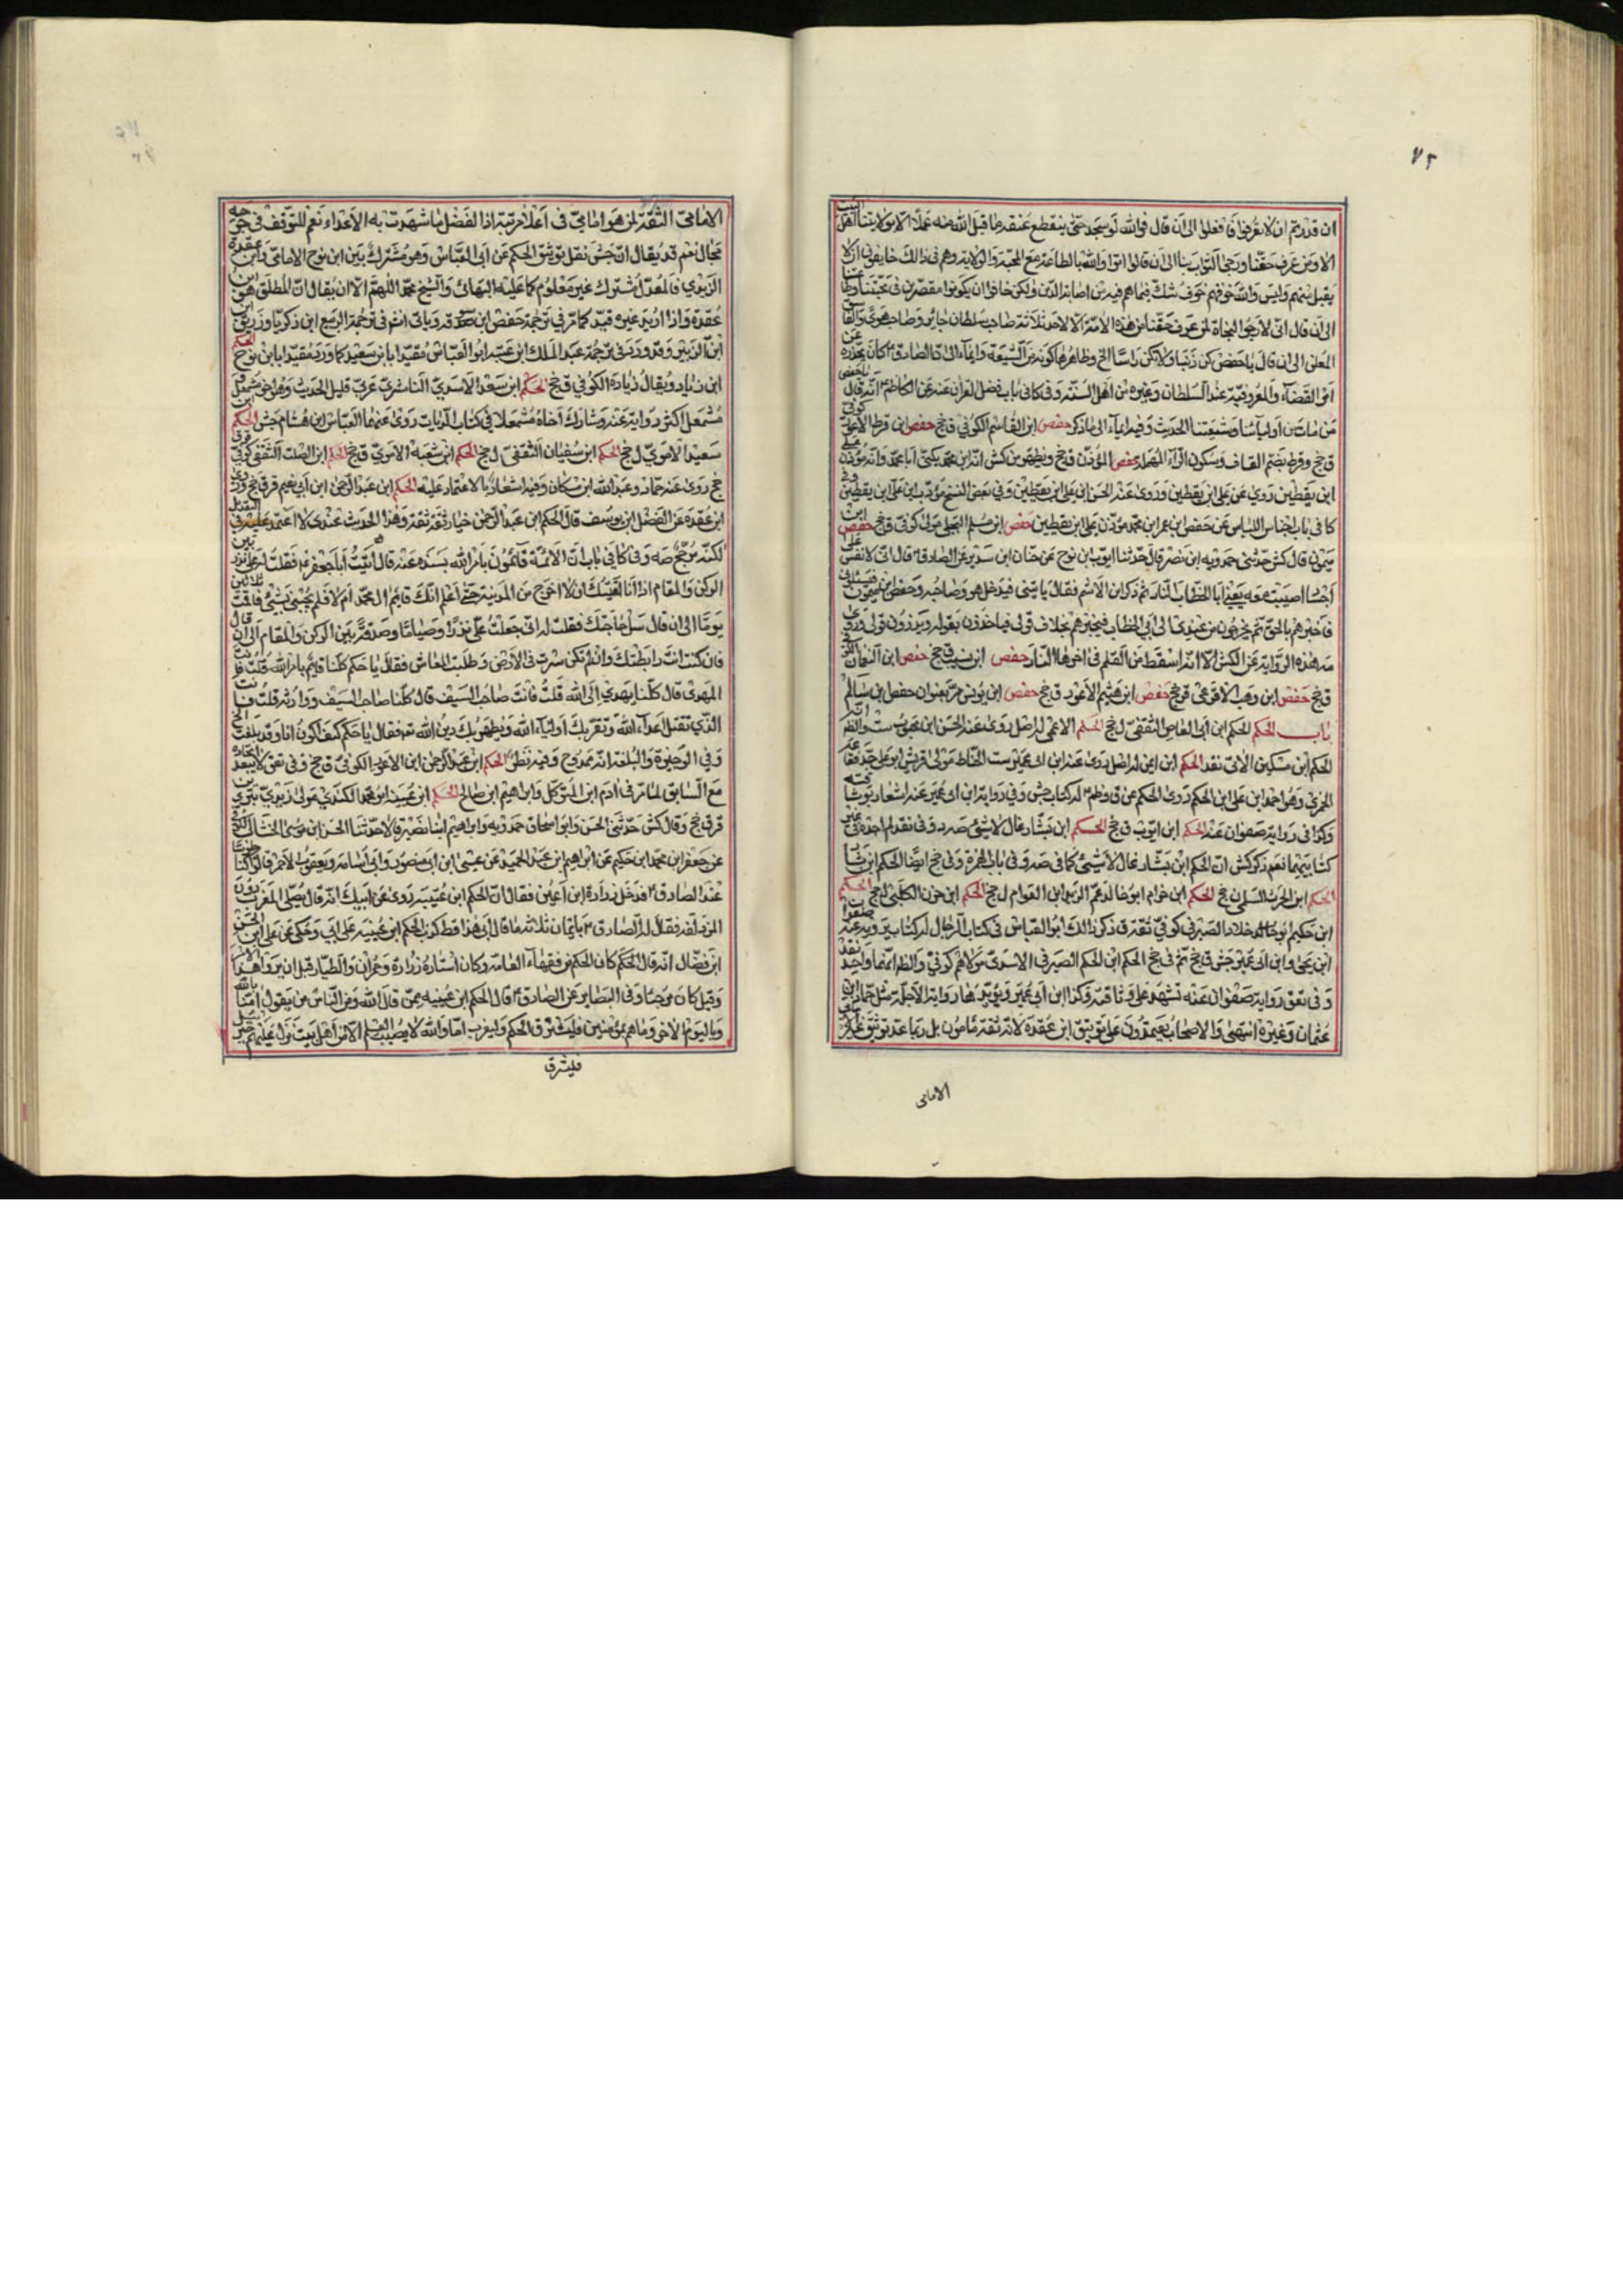 ٧٢
ان قدرتم ان لا تعرفوا فافعلوا الى ان قال فوالله لو سجد حتى ينقطع عنقه ما قبل الله منه عملا الا بولايتنا اهل البيت
الا ومن عرف حقنا ورجى الثواب بنا الى ان قالوا اتوا والله بالطاعة مع المحبة والولاية وهم في ذالك خايفون ان لا
يقبل منهم وليس والله خوفهم خوف شك فيما هم فيه من اصابة الدين ولكن خافوا ان يكونوا مقصرين في محبتنا وطاعتنا
الى ان قال اني لارجوا النجاة لمن عرف حقنا من هذه الامة الا لاحد ثلاثة صاحب سلطان جائر وصاحب هوى والفاسق
المعلن الى ان قال يا حفص كن ذنبا ولا تكن راسا الخ وظاهرها كونه من الشيعة وايماء الى ان الصادق كان يحذره عن
امر القضاء والمعروفية عند السلطان وغيره من اهل السنة وفي كافي باب فضل القران عنه عن الكاظم انه قال يا حفص
من مات من اوليائنا وشيعتنا الحديث وفيه ايماء الى ما ذكر حفص ابن القاسم الكوفي ق جخ حفص ابن قرط الاعور كوفي
ق جخ وقرط بضم القاف وسكون الراء المهملة حفص المؤذن ق جخ ويظهر من كش انه ابن محمد يكنى ابا محمد وانه مؤذن علي
ابن يقطين روى عن علي ابن يقطين وروى عنه الحسن ابن علي ابن يقطين وفي بعض النسخ مؤدب ابن علي ابن يقطين
كافي باب اجناس اللباس عن حفص ابن عمر ابن محمد مؤذن علي ابن يقطين حفص ابن مسلم البجلي مولى كوفي ق جخ حفص ابن
ميمون قال كش حدثني حمدويه ابن نصر قال حدثنا ايوب ابن نوح عن حنان ابن سدير عن الصادق قال اني لانفس على
اجساد اصيبت معه يعني ابا الخطاب النار ثم ذكر ابن الاشيم فقال ياتيني فيدخل هو وصاحبه وحفص ابن ميمون فيسئلوني
فاخبرهم بالحق ثم يخرجون من عندي الى ابي الخطاب فيخبرهم بخلاف قولي فياخذون بقوله ويذرون قولي وروى
مه هذه الرواية عن الكش الا انه اسقط من القلم في اخرها النار حفص ابن نسيب ق جخ حفص ابن النعمان الكوفي
ق جخ حفص ابن وهب الافرعي ق جخ حفص ابن هيثم الاعور ق جخ حفص ابن يونس مر بعنوان حفص ابن سالم
باب الحكم الحكم ابن ابي العاص الثقفي ل جخ الحكم الاعمى له اصل روى عنه الحسن ابن محبوب ست والظ انه
الحكم ابن مسكين الاتي نقد الحكم ابن ايمن له اصل روى عنه ابن ابي عمير ست الخناط مولى قريش ابو علي جد فقاعة
الخمري وهو احمد ابن علي ابن الحكم روى الحكم عن ق وظم له كتاب جش وفي رواية ابن ابي عمير عنه اشعار بوثاقته
وكذا في رواية صفوان عنه الحكم ابن ايوب ق جخ الحكم ابن بشار غال لا شيئ صه د وفي نقد لم اجده في غير
كتابيهما نعم ذكر كش ان الحكم ابن بشار غال لا شيئ كما في صه د وفي باب الهمزة وفي جخ ايضا الحكم ابن بشار
الحكم ابن الحرث السلمي ل جخ الحكم ابن حزام ابو خالد عم الزبير ابن العوام ل جخ الحكم ابن حزن الكلبي ل جخ الحكم
ابن حكيم ابو خلاد الصيرفي كوفي ثقة ق ذكر ذالك ابو العباس في كتاب الرجال له كتاب يرويه عنه صفوان
ابن يحيى وابن ابي عمير جش ق جخ ثم في جخ الحكم ابن الحكم الصيرفي الاسدي مولاهم كوفي والظ انهما واحد نقد
وفي تعق رواية صفوان عنه تشهد على وثاقته وكذا ابن ابي عمير ويؤيدها رواية الاجلة مثل حماد ابن
عثمان وغيره انتهى والاصحاب يعتمدون على توثيق ابن عقدة لانه ثقة مامون بل ربما عد توثيق غير
الامامي
الامامي الثقة لمن هو امامي في اعلا مرتبة اذ الفضل ما شهدت به الاعداء نعم للتوقف في جرحه
مجال نعم قد يقال ان جش نقل توثيق الحكم عن ابي العباس وهو مشترك بين ابن نوح الامامي وابن عقدة
الزيدي فالمعدل مشترك غير معلوم كما عليه البهائي والشيخ محمد اللهم الا ان يقال ان المطلق هو ابن
عقدة واذا اريد غيره قيد كما مر في ترجمة حفص ابن سوقة وياتي انشم في ترجمة الربيع ابن زكريا وزريق
ابن الزبير وقد ورد في ترجمة عبد الملك ابن عتبة ابو العباس مقيدا بابن سعيد كما ورد مقيدا بابن نوح الحكم
ابن زياد ويقال زيادة الكوفي ق جخ الحكم ابن سعد الاسدي الناشري عربي قليل الحديث وهو اخو مشمعل و
مشمعل اكثر رواية عنه وشارك اخاه مشمعلا في كتاب الديات روى عنهما العباس ابن هشام جش الحكم ابن
سعيد الاموي ل جخ الحكم ابن سفيان الثقفي ل جخ الحكم ابن شعبة الاموي ق جخ الحكم ابن الصلت الثقفي كوفي
جخ روى عنه حماد وعبد الله ابن مسكان وفيه اشعار بالاعتماد عليه الحكم ابن عبد الرحمن ابن ابي نعيم قر ق جخ وروى
ابن عقدة عن الفضل ابن يوسف قال الحكم ابن عبد الرحمن خيار ثقة ثقة وهذا الحديث عندي لا اعتمد عليه في التعديل
لكنه مرجح صه وفي كافي باب ان الائمة قائمون بامر الله بسنده عنه قال اتيت ابا جعفر فقلت له علي نذر بين
الركن والمقام اذا انا لقيتك ان لا اخرج من المدينة حتى اعلم انك قايم ال محمد ام لا فلم يجبني بشيئ فاقمت ثلاثين
يوما الى ان قال سل حاجتك فقلت له اني جعلت علي نذرا وصياما وصدقة بين الركن والمقام الى ان قال
فان كنت انت رابطتك وان لم تكن سرت في الارض وطلبت المعاش فقال يا حكم كلنا قايم بامر الله قلت فانت
المهدي قال كلنا يهدي الى الله قلت فانت صاحب السيف قال كلنا صاحب السيف ووارثه قلت فانت
الذي تقتل اعداء الله وتقر بك اولياء الله ويظهر بك دين الله تعه فقال يا حكم كيف اكون انا وقد بلغت الخ
وفي الوجيزة والبلغة انه ممدوح وفيه نظر الحكم ابن عبد الرحمن ابن الاعور الكوفي ق جخ وفي تعق لا يبعد اتحاده
مع السابق لما مر في ادم ابن المتوكل وابراهيم ابن صالح الحكم ابن عتيبة ابو محمد الكندي مولى زيدي بتري ين
قر ق جخ وقال كش حدثني ابو الحسن وابو اسحاق حمدويه وابراهيم ابنا نصير قالا حدثنا الحسن ابن موسى الخشاب الكوفي
عن جعفر ابن محمد ابن حكيم عن ابراهيم ابن عبد الحميد عن عيسى ابن ابي منصور وابي اسامة ويعقوب الاحمر قالوا كنا جلوسا
عند الصادق فدخل زرارة ابن اعين فقال ان الحكم ابن عتيبة روى عن ابيك انه قال يصلى المغرب دون
المزدلفة فقال له الصادق بايمان ثلاثة ما قال ابي هذا قط كذب الحكم ابن عتيبة على ابي وحكى عن علي ابن الحسن
ابن فضال انه قال الحكم كان الحكم من فقهاء العامة وكان استاد زرارة وحمران والطيار قبل ان يروا هذا الامر
وقيل كان مرجئا وفي البصاير عن الصادق قال الحكم ابن عتيبة ممن قال الله ومن الناس من يقول امنا بالله
وباليوم الاخر وما هم بمؤمنين فليشرق الحكم وليغرب اما والله لا يصيب العلم الا من اهل بيت نزل عليهم جبرئيل
فليشرق